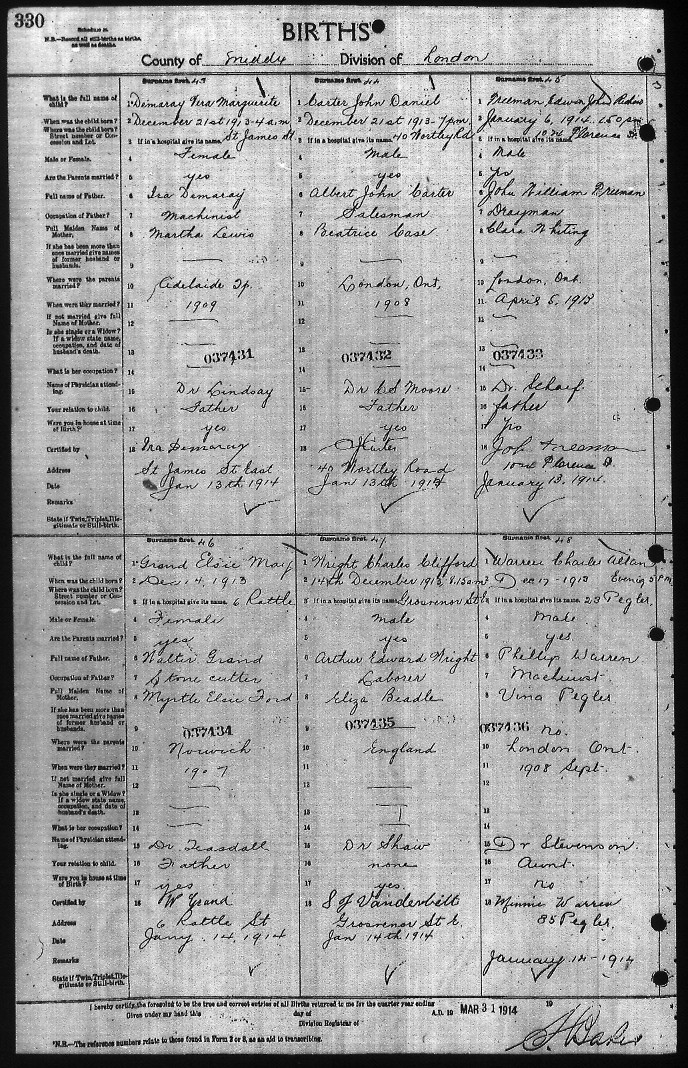 330
Schedule
N.B.—Record all still-births as births,
as well as deaths.
BIRTHS
County of Middx Division of London
Surname first. 43 Surname first. 44 Surname first. 45
What is the full name of child? 1 Demaray Vera Marguerite 1 Carter John Daniel 1 Freeman Edwin John
When was the child born? 2 December 21st 1913-4 a.m. 2 December 21st 1913-7 p.m. 2 January 6, 1914.
Where was the child born? Street number or Concession and Lot. 3 If in a hospital give its name. St James St. 3 If in a hospital give its name. 40 Wortley Rd 3 If in a hospital give its name. Florence St
Male or Female. 4 Female 4 Male 4 Male
Are the Parents married? 5 yes 5 yes 5 yes
Full name of Father. 6 Ira Demaray 6 Albert John Carter 6 John William Freeman
Occupation of Father? 7 Machinist 7 Salesman 7 Drayman
Full Maiden Name of Mother. 8 Martha Lewis 8 Beatrice Case 8 Clara Whiting
If she has been more than once married give names of former husband or husbands. 9 — 9 — 9 —
Where were the parents married? 10 Adelaide Tp. 10 London, Ont, 10 London, Ont.
When were they married? 11 1909 11 1908 11 April 5, 1913
If not married give full Name of Mother. 12 — 12 — 12 —
Is she single or a Widow? If a widow state name, occupation, and date of husband's death. 13 — 13 — 13 —
037431 037432 037433
What is her occupation? 14 14 14
Name of Physician attending. 15 Dr Lindsay 15 Dr C S Moore 15 Dr. Schaef
Your relation to child. 16 Father 16 Father 16 father
Were you in house at time of Birth? 17 yes 17 yes 17 yes
Certified by 18 Ira Demaray 18 18 Joh Freeman
Address St James St East 40 Wortley Road Florence St
Date Jan 13th 1914 Jan 13th 1914 January 13, 1914.
Remarks
State if Twin, Triplet, Illegitimate or Still-birth.
Surname first. 46 Surname first. 47 Surname first. 48
What is the full name of child? 1 Grand Elsie May 1 Wright Charles Clifford 1 Warren Charles Allan
When was the child born? 2 Dec 14, 1913 2 14th December 1913 2 Dec 17-1913 Evening 5 P.m.
Where was the child born? Street number or Concession and Lot. 3 If in a hospital give its name. 6 Rattle 3 If in a hospital give its name. Grosvenor St 3 If in a hospital give its name. 23 Pegler.
Male or Female. 4 Female 4 Male 4 Male
Are the Parents married? 5 yes 5 yes 5 yes
Full name of Father. 6 Walter Grand 6 Arthur Edward Wright 6 Phillip Warren
Occupation of Father? 7 Stone cutter 7 Laborer 7 Machinist
Full Maiden Name of Mother. 8 Myrtle Elsie Ford 8 Eliza Beadle 8 Vina Pegler
If she has been more than once married give names of former husband or husbands. 9 9 9 no.
037434 037435 037436
Where were the parents married? 10 Norwich 10 England 10 London Ont
When were they married? 11 1907 11 11 1908 Sept.
If not married give full Name of Mother. 12 — 12 12
Is she single or a Widow? If a widow state name, occupation, and date of husband's death. 13 — 13 — 13
What is her occupation? 14 14 14
Name of Physician attending. 15 Dr. Teasdall 15 Dr Shaw 15 Dr Stevenson
Your relation to child. 16 Father 16 none 16 Aunt.
Were you in house at time of Birth? 17 yes 17 yes. 17 no
Certified by 18 W Grand 18 S J Vanderbelt 18 Minnie Warren
Address 6 Rattle St Grosvenor St E. 85 Pegler.
Date Jany. 14, 1914 Jan 14th 1914
Remarks January 14-1914
State if Twin, Triplet, Illegitimate or Still-birth.
I hereby certify, the foregoing to be the true and correct entries of all Births returned to me for the quarter year ending 19
Given under my hand this day of A.D. 19 MAR 31 1914
Division Registrar of
*N.B.—The reference numbers relate to those found in Form 2 or 3, as an aid to transcribing.